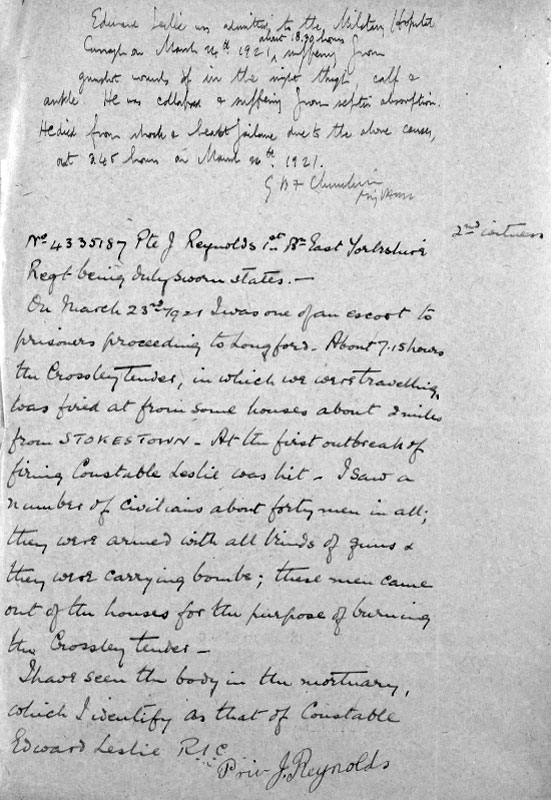 Edward Leslie was admitted to the Military Hospital
about 18.30 hours
Curragh on March 24th 1921, suffering from
gunshot wounds of in the right thigh calf &
ankle. He was collapsed & suffering from septic absorption.
He died from shock & heart failure due to the above causes,
at 2.45 hours on March 26th 1921.
2nd witness
No 4335187 Pte J Reynolds 1st Bn East Yorkshire
Regt being duly sworn states.—
On March 23rd 1921 I was one of an escort to
prisoners proceeding to Longford. About 7.15 hours
the Crossley tender, in which we were travelling,
was fired at from some houses about 2 miles
from STOKESTOWN – At the first outbreak of
firing Constable Leslie was hit – I saw a
number of civilians about forty men in all;
they were armed with all kinds of guns &
they were carrying bombs; these men came
out of the houses for the purpose of burning
the Crossley tender –
I have seen the body in the mortuary,
which I identify as that of Constable
Edward Leslie R.I.C.
Priv J. Reynolds